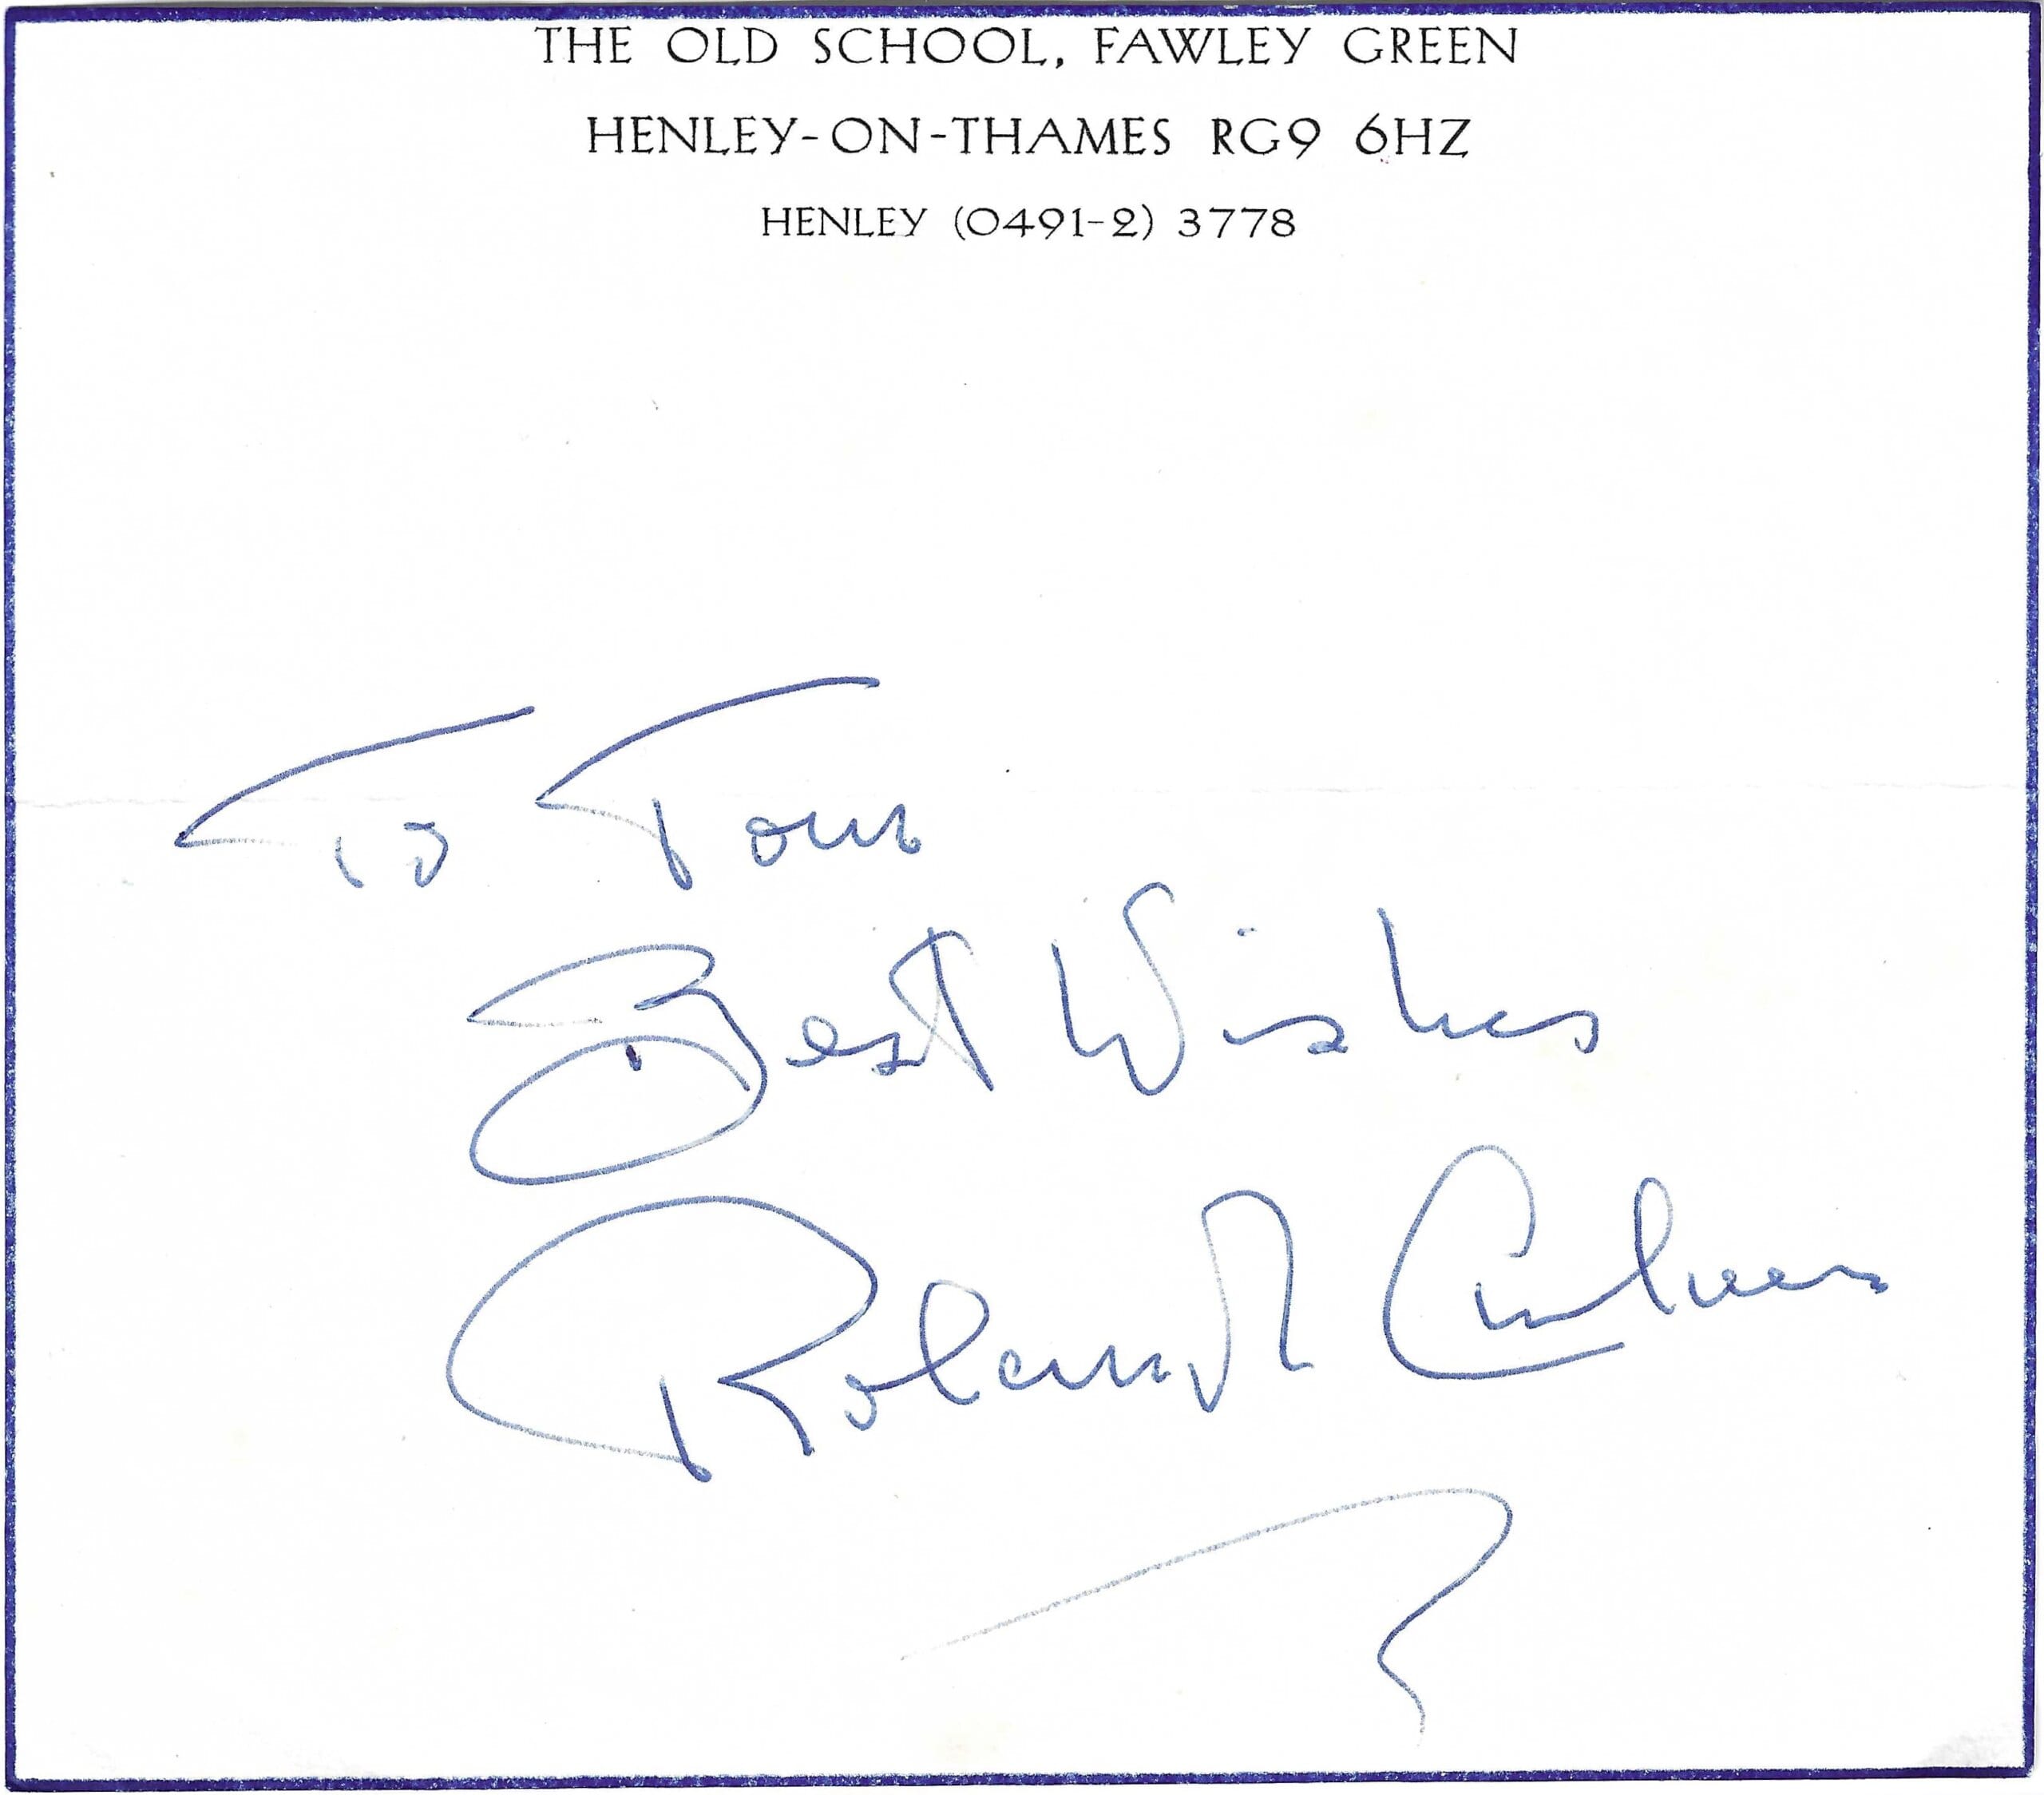 THE OLD SCHOOL, FAWLEY GREEN
HENLEY-ON-THAMES RG9 6HZ
HENLEY (0491-2) 3778
To Tom
Best Wishes
Roland Culver